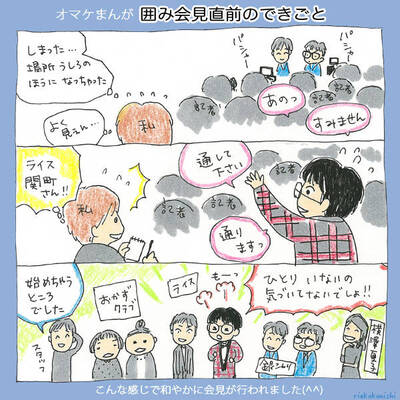 オマケまんが 囲み会見直前のできごと
しまった…
場所うしろの
ほうに なっちゃった
よく
見えん…
私
パシャー
パシャー
記者
記者
記者
あのっ
すみません
ライス
関町
さん!!
私
記者
通して
下さい
通り
ますっ
記者
記者
始めちゃう
ところ
でした
スタッフ
おかず
クラブ
ライス
もーっ
ひとり いないの
気づいてないでしょ!!
銀シャリ
横澤夏子
こんな感じで和やかに会見が行われました(^^)